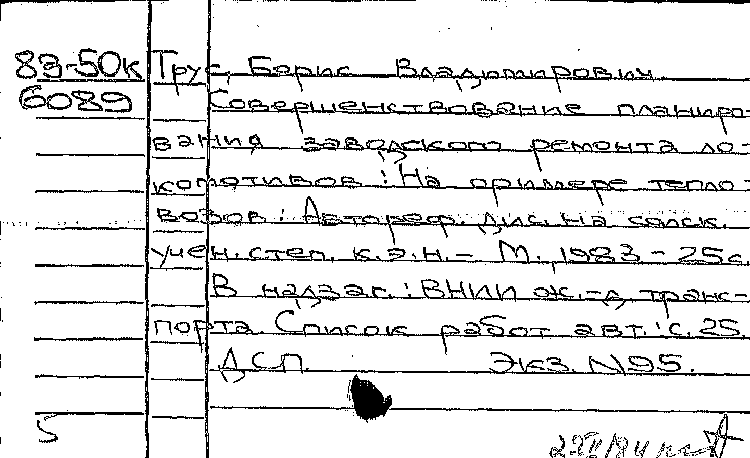 83-50к Трус, Борис Владимирович.
6089 Совершенствование планиро-
вания заводского ремонта ло-
комотивов: На примере тепло-
возов: Автореф. дис. на соиск.
учен. степ. к.э.н. - М., 1983 - 25с.
В надзаг.: ВНИИ ж.-д. транс-
порта. Список работ авт.: с. 25.
ДСП. Экз. N95.
5